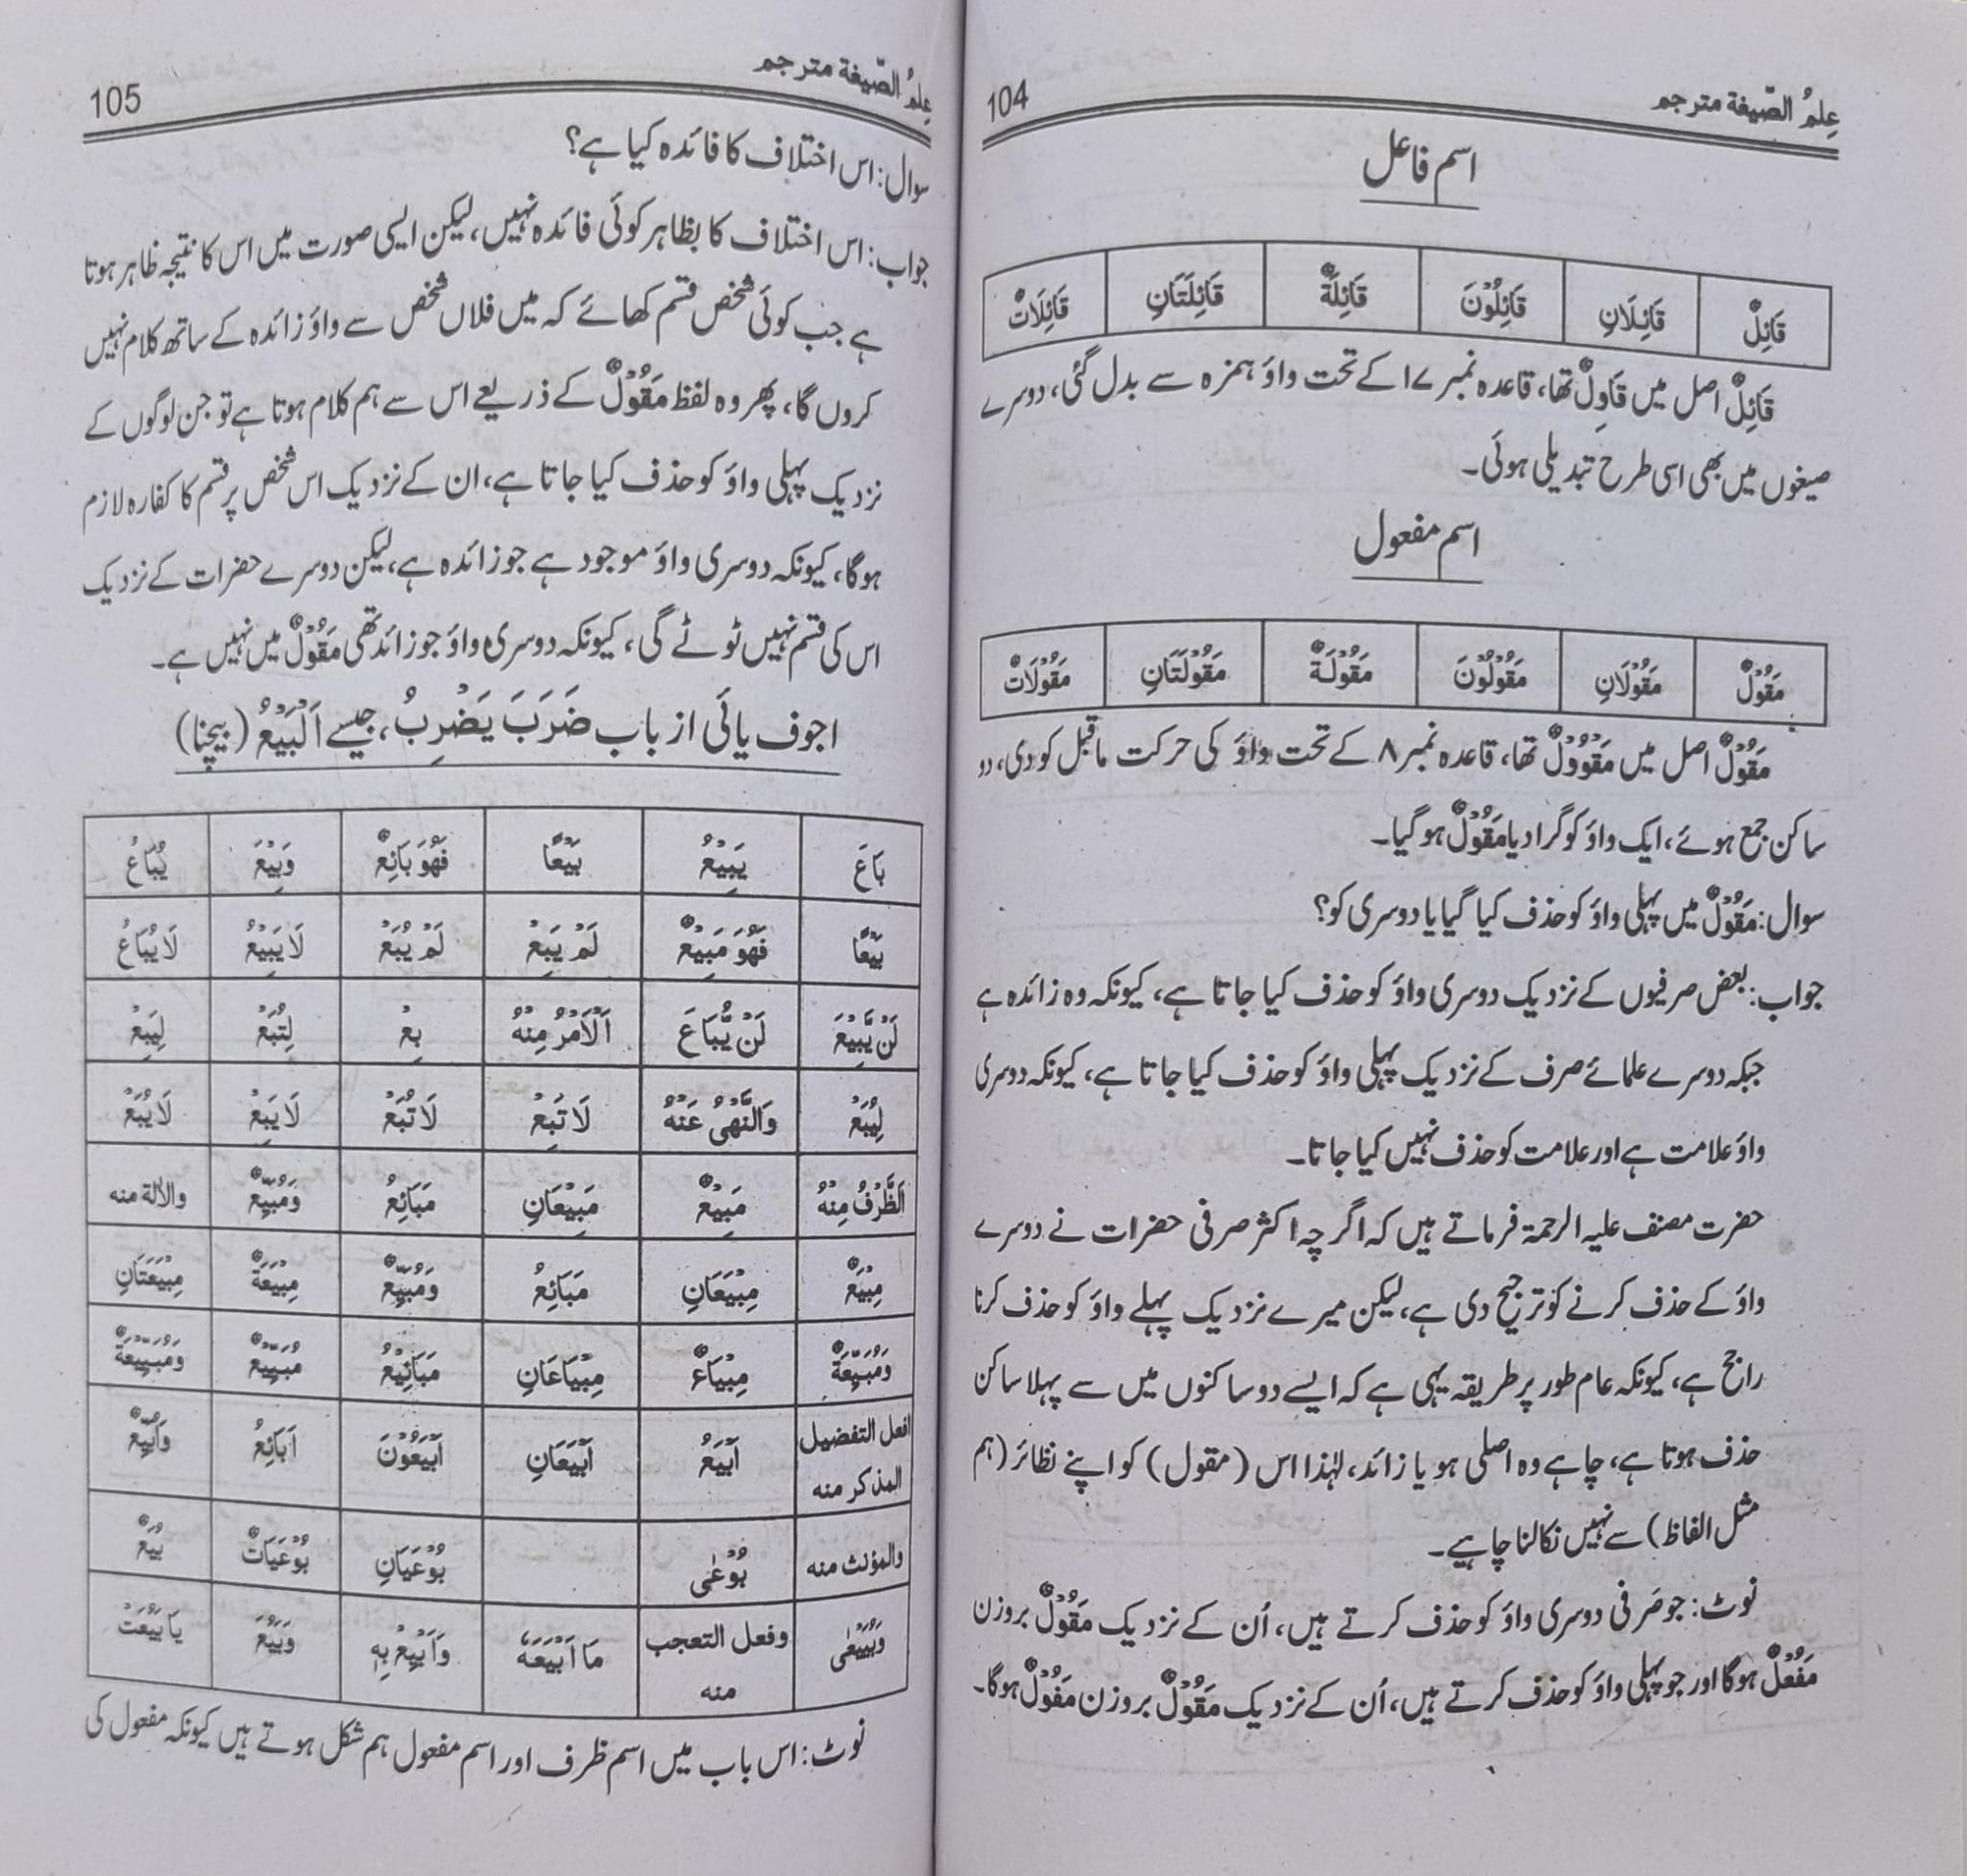 عِلمُ الصّیغة مترجم
104
اسم فاعل
قَائِلٌ قَائِلَانِ قَائِلُوْنَ قَائِلَةٌ قَائِلَتَانِ قَائِلَاتٌ
قَائِلٌ اصل میں قَاوِلٌ تھا، قاعدہ نمبر ۱۷ کے تحت واؤ ہمزہ سے بدل گئی، دوسرے
صیغوں میں بھی اسی طرح تبدیلی ہوئی۔
اسم مفعول
مَقُوْلٌ مَقُوْلَانِ مَقُوْلُوْنَ مَقُوْلَةٌ مَقُوْلَتَانِ مَقُوْلَاتٌ
مَقُوْلٌ اصل میں مَقْوُوْلٌ تھا، قاعدہ نمبر ۸ کے تحت واؤ کی حرکت ماقبل کو دی، دو
ساکن جمع ہوئے، ایک واؤ کو گرا دیا مَقُوْلٌ ہو گیا۔
سوال: مَقُوْلٌ میں پہلی واؤ کو حذف کیا گیا یا دوسری کو؟
جواب: بعض صرفیوں کے نزدیک دوسری واؤ کو حذف کیا جاتا ہے، کیونکہ وہ زائدہ ہے
جبکہ دوسرے علمائے صرف کے نزدیک پہلی واؤ کو حذف کیا جاتا ہے، کیونکہ دوسری
واؤ علامت ہے اور علامت کو حذف نہیں کیا جاتا۔
حضرت مصنف علیہ الرحمۃ فرماتے ہیں کہ اگرچہ اکثر صرفی حضرات نے دوسرے
واؤ کے حذف کرنے کو ترجیح دی ہے، لیکن میرے نزدیک پہلے واؤ کو حذف کرنا
راجح ہے، کیونکہ عام طور پر طریقہ یہی ہے کہ ایسے دو ساکنوں میں سے پہلا ساکن
حذف ہوتا ہے، چاہے وہ اصلی ہو یا زائد، لہٰذا اس (مقول) کو اپنے نظائر (ہم
مثل الفاظ) سے نہیں نکالنا چاہیے۔
نوٹ: جو صَرفی دوسری واؤ کو حذف کرتے ہیں، اُن کے نزدیک مَقُوْلٌ بروزن
مَفُعْلٌ ہوگا اور جو پہلی واؤ کو حذف کرتے ہیں، اُن کے نزدیک مَقُوْلٌ بروزن مَفُوْلٌ ہوگا۔
عِلمُ الصّیغة مترجم
105
سوال: اس اختلاف کا فائدہ کیا ہے؟
جواب: اس اختلاف کا بظاہر کوئی فائدہ نہیں، لیکن ایسی صورت میں اس کا نتیجہ ظاہر ہوتا
ہے جب کوئی شخص قسم کھائے کہ میں فلاں شخص سے واؤ زائدہ کے ساتھ کلام نہیں
کروں گا، پھر وہ لفظ مَقُوْلٌ کے ذریعے اس سے ہم کلام ہوتا ہے تو جن لوگوں کے
نزدیک پہلی واؤ کو حذف کیا جاتا ہے، ان کے نزدیک اس شخص پر قسم کا کفارہ لازم
ہوگا، کیونکہ دوسری واؤ موجود ہے جو زائدہ ہے، لیکن دوسرے حضرات کے نزدیک
اس کی قسم نہیں ٹوٹے گی، کیونکہ دوسری واؤ جو زائد تھی مَقُوْلٌ میں نہیں ہے۔
اجوف یائی از باب ضَرَبَ يَضْرِبُ، جیسے اَلْبَيْعُ (بیچنا)
بَاعَ يَبِيْعُ بَيْعًا فَهُوَ بَائِعٌ وَبِيْعَ يُبَاعُ
بَيْعًا فَهُوَ مَبِيْعٌ لَمْ يَبِعْ لَمْ يُبَعْ لَا يَبِيْعُ لَا يُبَاعُ
لَنْ يَّبِيْعَ لَنْ يُّبَاعَ اَلْاَمْرُ مِنْهُ بِعْ لِتُبَعْ لِيَبِعْ
لِيُبَعْ وَالنَّهْىُ عَنْهُ لَا تَبِعْ لَا تُبَعْ لَا يَبِعْ لَا يُبَعْ
اَلظَّرْفُ مِنْهُ مَبِيْعٌ مَبِيْعَانِ مَبَائِعُ وَمُبَيِّعٌ والألة منه
مِبْيَعٌ مِبْيَعَانِ مَبَائِعُ وَمُبَيِّعٌ مِبْيَعَةٌ مِبْيَعَتَانِ
وَمُبَيِّعَةٌ مِبْيَاعٌ مِبْيَاعَانِ مَبَائِيْعُ مُبَيِّيْعٌ وَمُبَيِّيْعَةٌ
افعل التفضيل المذكر منه اَبْيَعُ اَبْيَعَانِ اَبْيَعُوْنَ اَبَائِعُ وَاُبَيِّعٌ
والمؤنث منه بُوْعٰى بُوْعَيَانِ بُوْعَيَاتٌ بُيَعٌ
وَبُيَيْعٰى وفعل التعجب منه مَا اَبْيَعَهٗ وَاَبْيِعْ بِهٖ وَبَيُعَ يا بَيُعَتْ
نوٹ: اس باب میں اسم ظرف اور اسم مفعول ہم شکل ہوتے ہیں کیونکہ مفعول کی